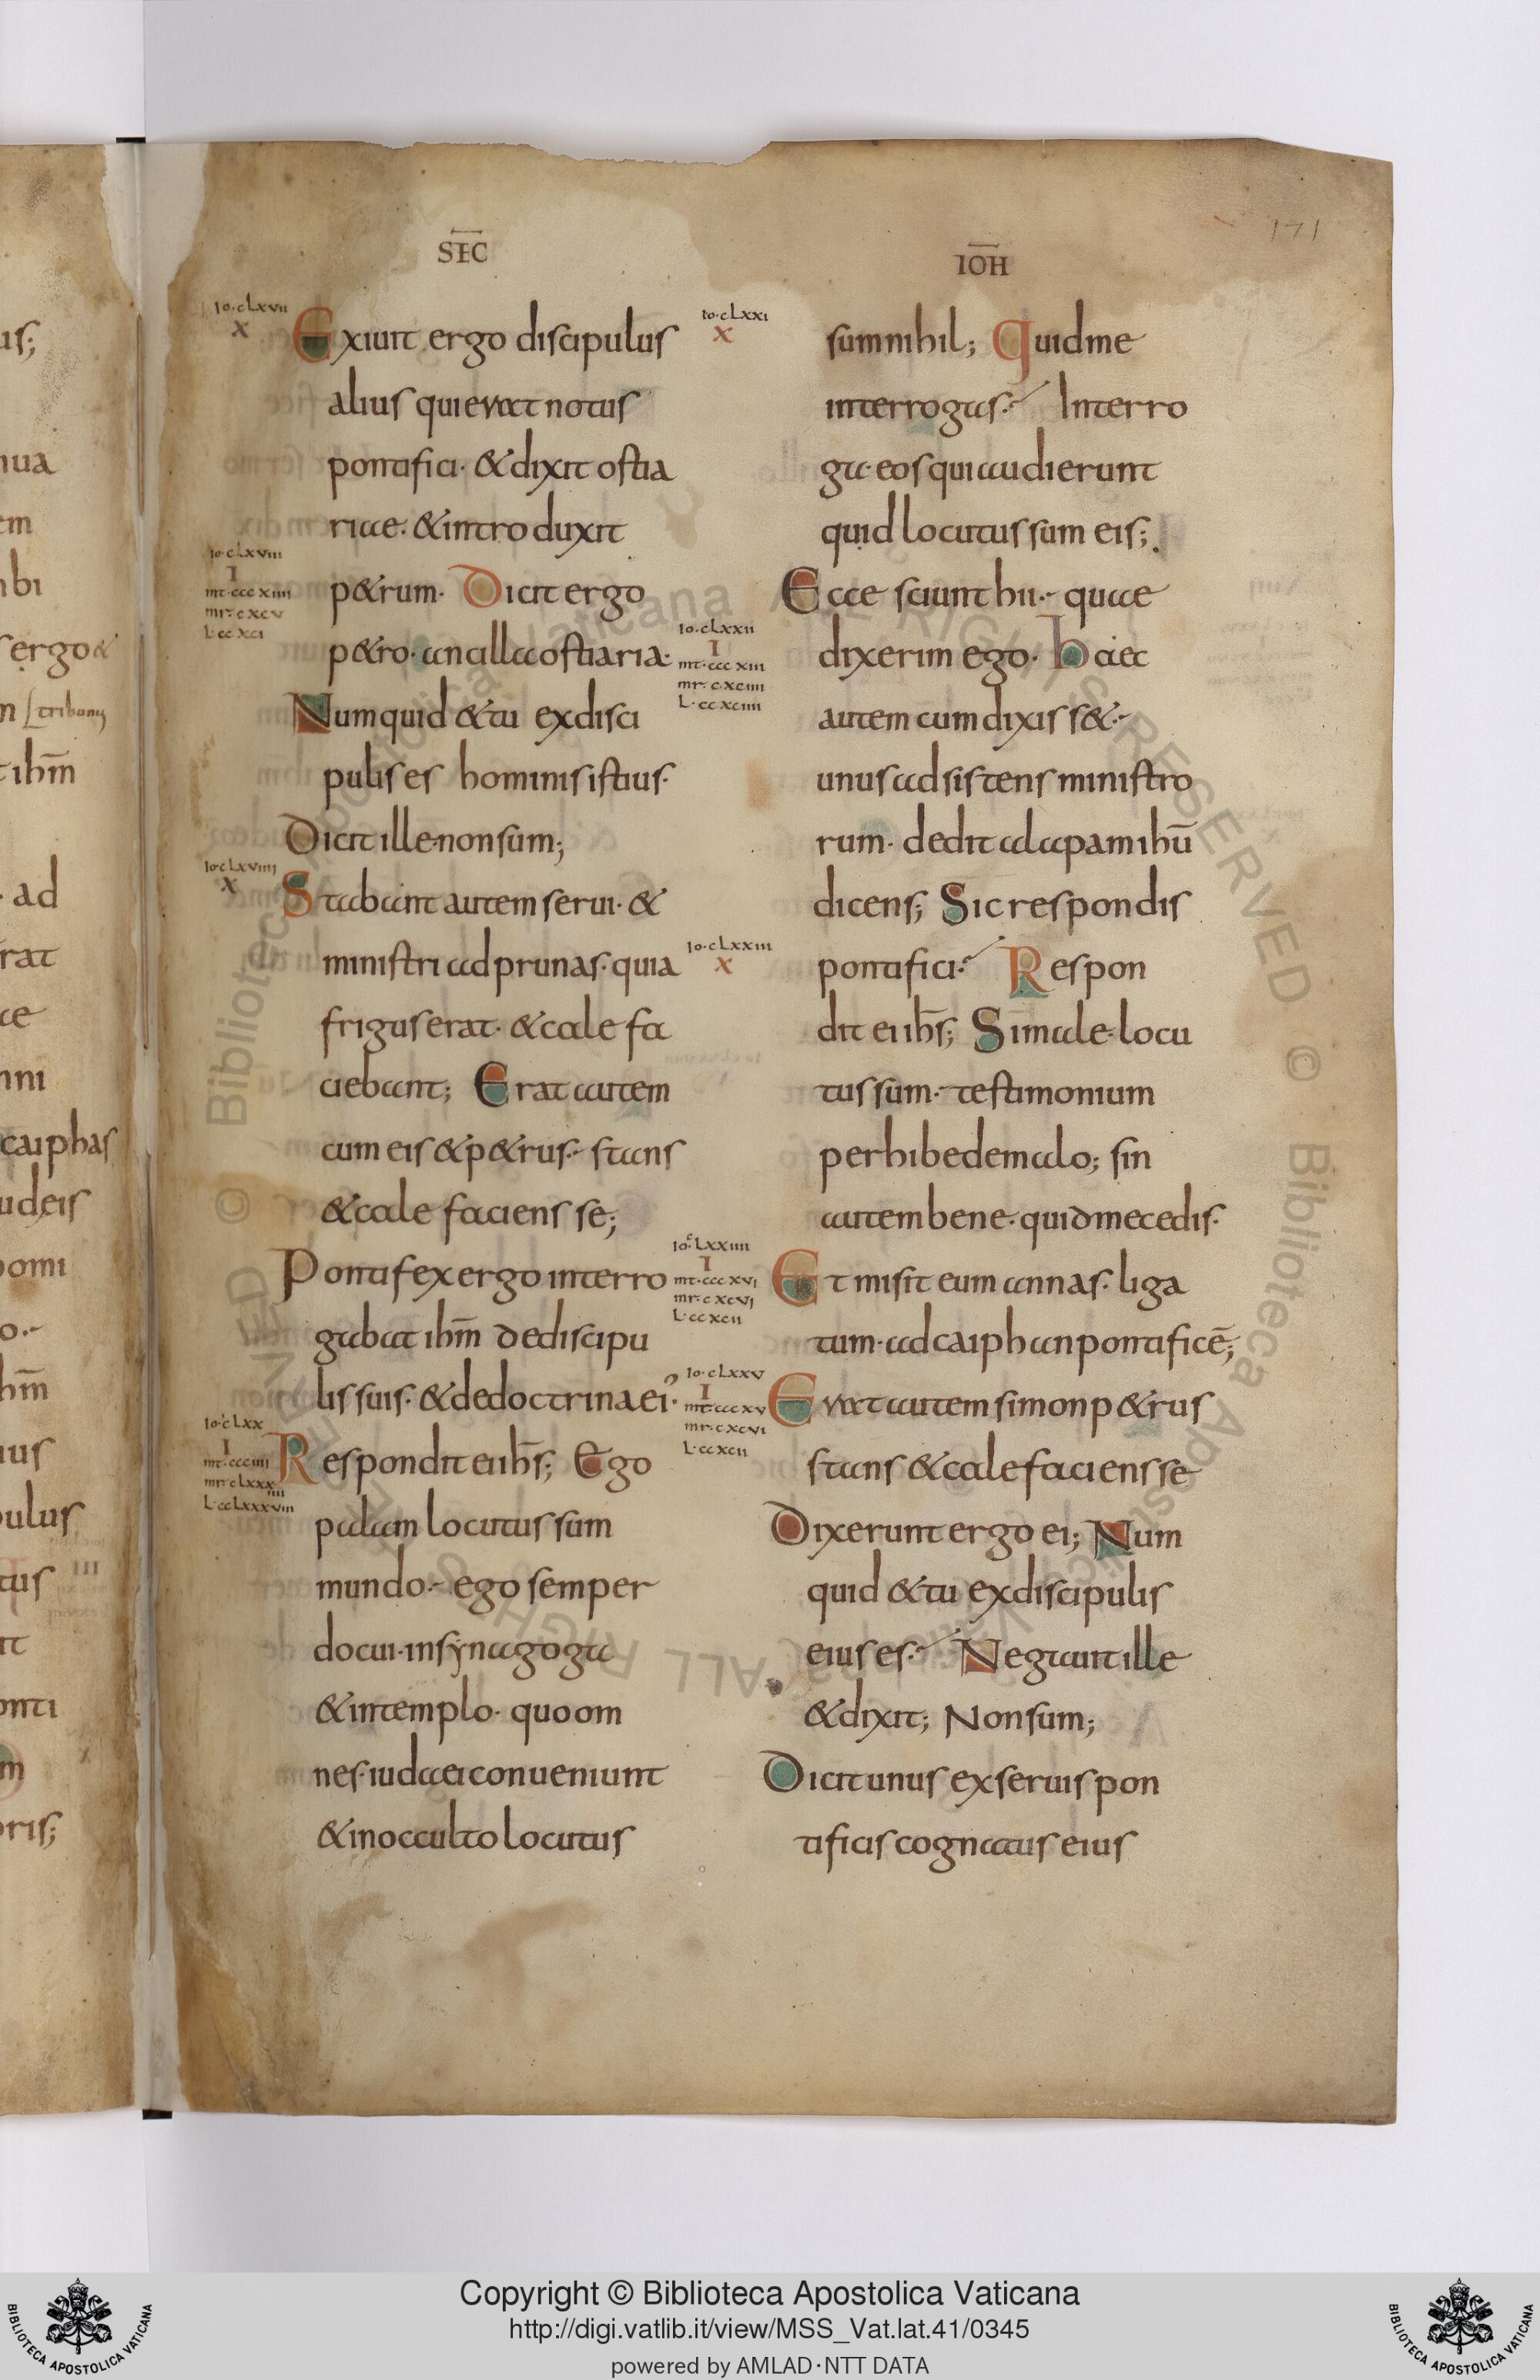 SEC
IOH
171
Io·clxvii
x
Exiuit ergo discipulus
alius qui erat notus
pontifici· & dixit ostia
riae· & introduxit
Io·clxviii
I
mt·cccxiiii
mr·cxcv
L·ccxci
p&rum· Dicit ergo
p&ro· ancilla ostiaria·
Numquid & tu ex disci
pulis es hominis istius·
Dicit ille non sum;
Io·clxviiii
x
Stabant autem serui· &
ministri ad prunas· quia
frigus erat· & cale fa
ciebant; Erat autem
cum eis & p&rus· stans
& cale faciens se;
Pontifex ergo interro
gabat ihm̄ de discipu
lis suis· & de doctrina ei᾽·
Io·clxx
I
mt·ccciiii
mr·clxxxiiii
L·cclxxxviii
Respondit ei ihs̄; Ego
palam locutus sum
mundo· ego semper
docui· in synagoga
& in templo· quo om
nes· iudaei conueniunt
& in occulto locutus
Io·clxxi
x
sum nihil; Quid me
interrogas· Interro
ga· eos qui audierunt
quid locutus sum eis;
Ecce sciunt hii· quae
Io·clxxii
I
mt·cccxiii
mr·cxciiii
L·ccxciiii
dixerim ego· haec
autem cum dixiss&·
unus adsistens ministro
rum· dedit alapam ihū
dicens; Sic respondis
Io·clxxiii
x
pontifici· Respon
dit ei ihs̄; Si male· locu
tus sum· testimonium
perhibe de malo; sin
autem bene· quid me cedis·
Io·clxxiiii
I
mt·cccxvi
mr·cxcvi
L·ccxcii
Et misit eum annas· liga
tum· ad caiphan pontificē;
Io·clxxv
I
mt·cccxv
mr·cxcvi
L·ccxcii
Erat autem simon p&rus
stans & cale faciens se
Dixerunt ergo ei; Num
quid & tu ex discipulis
eius es· Negauit ille
& dixit; Non sum;
Dicit unus ex seruis pon
tificis cognatus eius
Copyright © Biblioteca Apostolica Vaticana
http://digi.vatlib.it/view/MSS_Vat.lat.41/0345
powered by AMLAD·NTT DATA
BIBLIOTECA APOSTOLICA VATICANA
BIBLIOTECA APOSTOLICA VATICANA